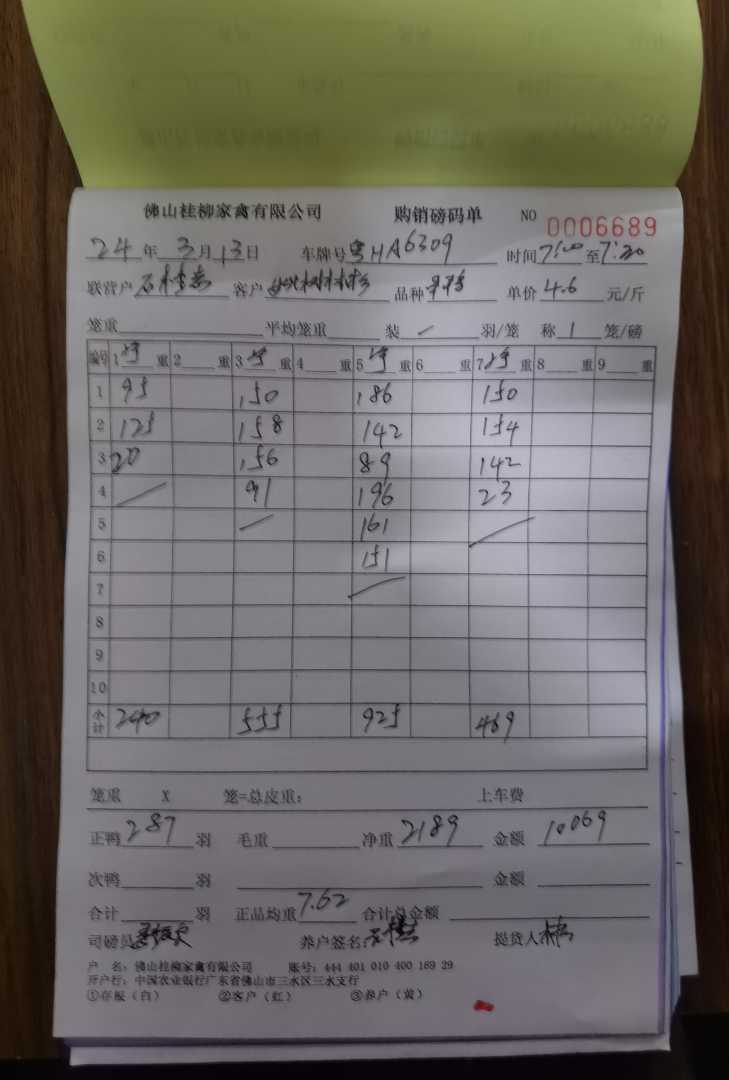 佛山桂柳家禽有限公司 购销磅码单 NO 0006689
24年3月13日 车牌号粤HA6309 时间7:00至7:20
联营户 客户 品种 单价4.6元/斤
笼重 平均笼重 装 / 羽/笼 称 1 笼/磅
编号 1 重 2 重 3 重 4 重 5 重 6 重 7 重 8 重 9 重
1 95 150 186 150
2 125 158 142 154
3 20 156 89 142
4 / 91 196 23
5 / 161 /
6 151
7 /
8
9
10
小计 240 555 925 469
笼重 X 笼=总皮重: 上车费
正鸭287羽 毛重 净重2189 金额10069
次鸭 羽 金额
合计 羽 正品均重7.62 合计总金额
司磅员 养户签名: 提货人
户 名:佛山桂柳家禽有限公司 账号:444 401 010 400 169 29
开户行:中国农业银行广东省佛山市三水区三水支行
①存板(白) ②客户(红) ③养户(黄)